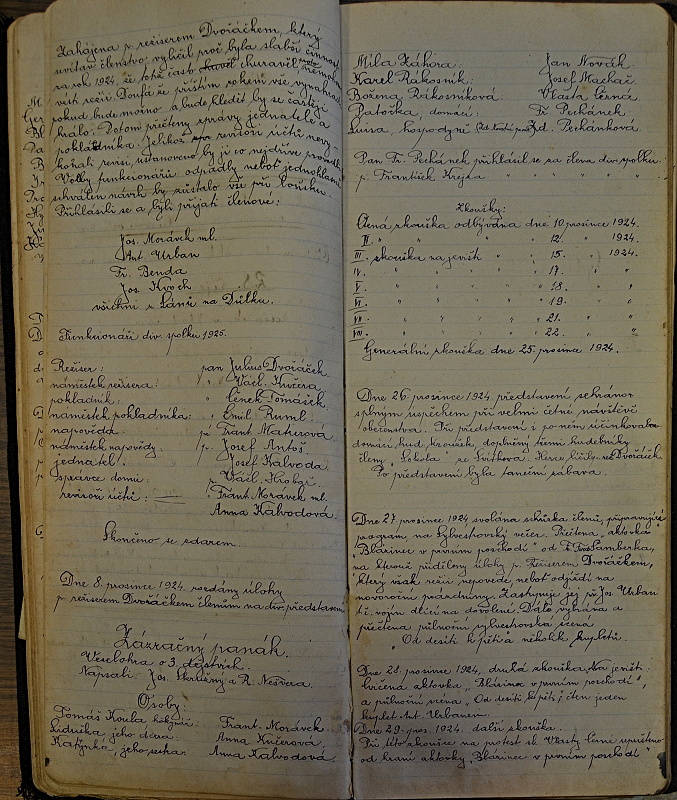 Zahájena p. režiserem Dvořáčkem, který
uvítav členstvo vylíčil proč byla slabší činnost
za rok 1924, že totiž často churavěl nemohl
vésti režii. Doufá že příštím rokem vše vynahradí
pokud bude možno a bude hleděti by se častěji
hrálo. Potom přečteny zprávy jednatele a
pokladníka. Jelikož revisoři účtů nevy-
konali revisi, ustanoveno by ji co nejdříve provedli
Volby funkcionářů odpadly neboť jednohlasně
schválen návrh by zůstalo vše při loňsku.
Přihlásili se a byli přijati členové:
Jos. Morávek ml.
Ant. Urban
Fr. Benda
Jos. Kroch
všichni z Lání na Důlku.
Funkcionáři div. spolku 1925.
Režiser: pan Julius Dvořáček
náměstek režisera: " Václ. Kučera
pokladník: " Čeněk Tomášek
náměstek pokladníka: " Emil Ruml.
nápověda: pí Frant. Maturová
náměstek nápovědy: p. Josef Antoš.
jednatel: " Josef Kalvoda
správce domu: " Václ. Hrobař.
revisoři účtů: " Frant. Morávek ml.
Anna Kalvodová.
Skončeno se zdarem.
Dne 8. prosince 1924, rozdány úlohy
p. režiserem Dvořáčkem členům na div. představení
Zázračný panák.
Veselohra o 3. dějstvích.
Napsali: Jos. Skružný a R. Nešvera.
Osoby:
Tomáš Koula Frant. Morávek
Liduška jeho dcera: Anna Kučerová
Katynka, jeho sestra: Anna Kalvodová
Míla Záhora: Jan Novák
Karel Rákosník: Josef Machač
Božena Rákosníková: Vlasta Černá
Patočka, domácí: Fr. Pechánek
hospodyně Pechánková.
Pan Fr. Pechánek přihlásil se za člena div. spolku.
p. František Krejza " " " " "
Zkoušky:
Čtená zkouška odbývána dne 10. prosince 1924.
II. " " " " 12. " 1924.
III. zkouška na jevišti " " 15. " 1924.
IV. " " " " 17. " "
V. " " " " 18. " "
VI. " " " " 19. " "
VII. " " " " 21. " "
VIII. " " " " 22. " "
Generální zkouška dne 25. prosince 1924.
Dne 26. prosince 1924, představení sehráno
s plným úspěchem při velmi četné návštěvě
občanstva. Při představení i po něm účinkoval
domácí hud. kroužek, doplněný třemi hudebníky
členy "Sokola" ze Svítkova. Dvořáček.
Po představení byla taneční zábava.
Dne 27. prosince 1924 svolána schůzka členů, připravující
program, na Sylvestrovský večer. Přečtena "aktovka"
"Blázinec v prvním poschodí" od Šamberka,
na kterouž přiděleny úlohy p. Režiserem Dvořáčkem,
který však režii nepovede, neboť odjíždí na
novoroční prázdniny. Zastupuje jej př. Jos. Urban
t. č. vojín dlící na dovolené. Dále vybrána a
přečtena půlnoční sylvestrovská scéna
"Od desíti k pěti" a několik kupletů.
Dne 28. prosince 1924, druhá zkouška, na jevišti:
cvičena aktovka "Blázinec v prvním poschodí",
a půlnoční scéna "Od desíti k pěti", čten jeden
kuplet Ant. Urbanem.
Dne 29. pros 1924. další zkouška.
Při této zkoušce na protest sl. Vlasty Černé upuštěno
od hraní aktovky "Blázinec v prvním poschodí"